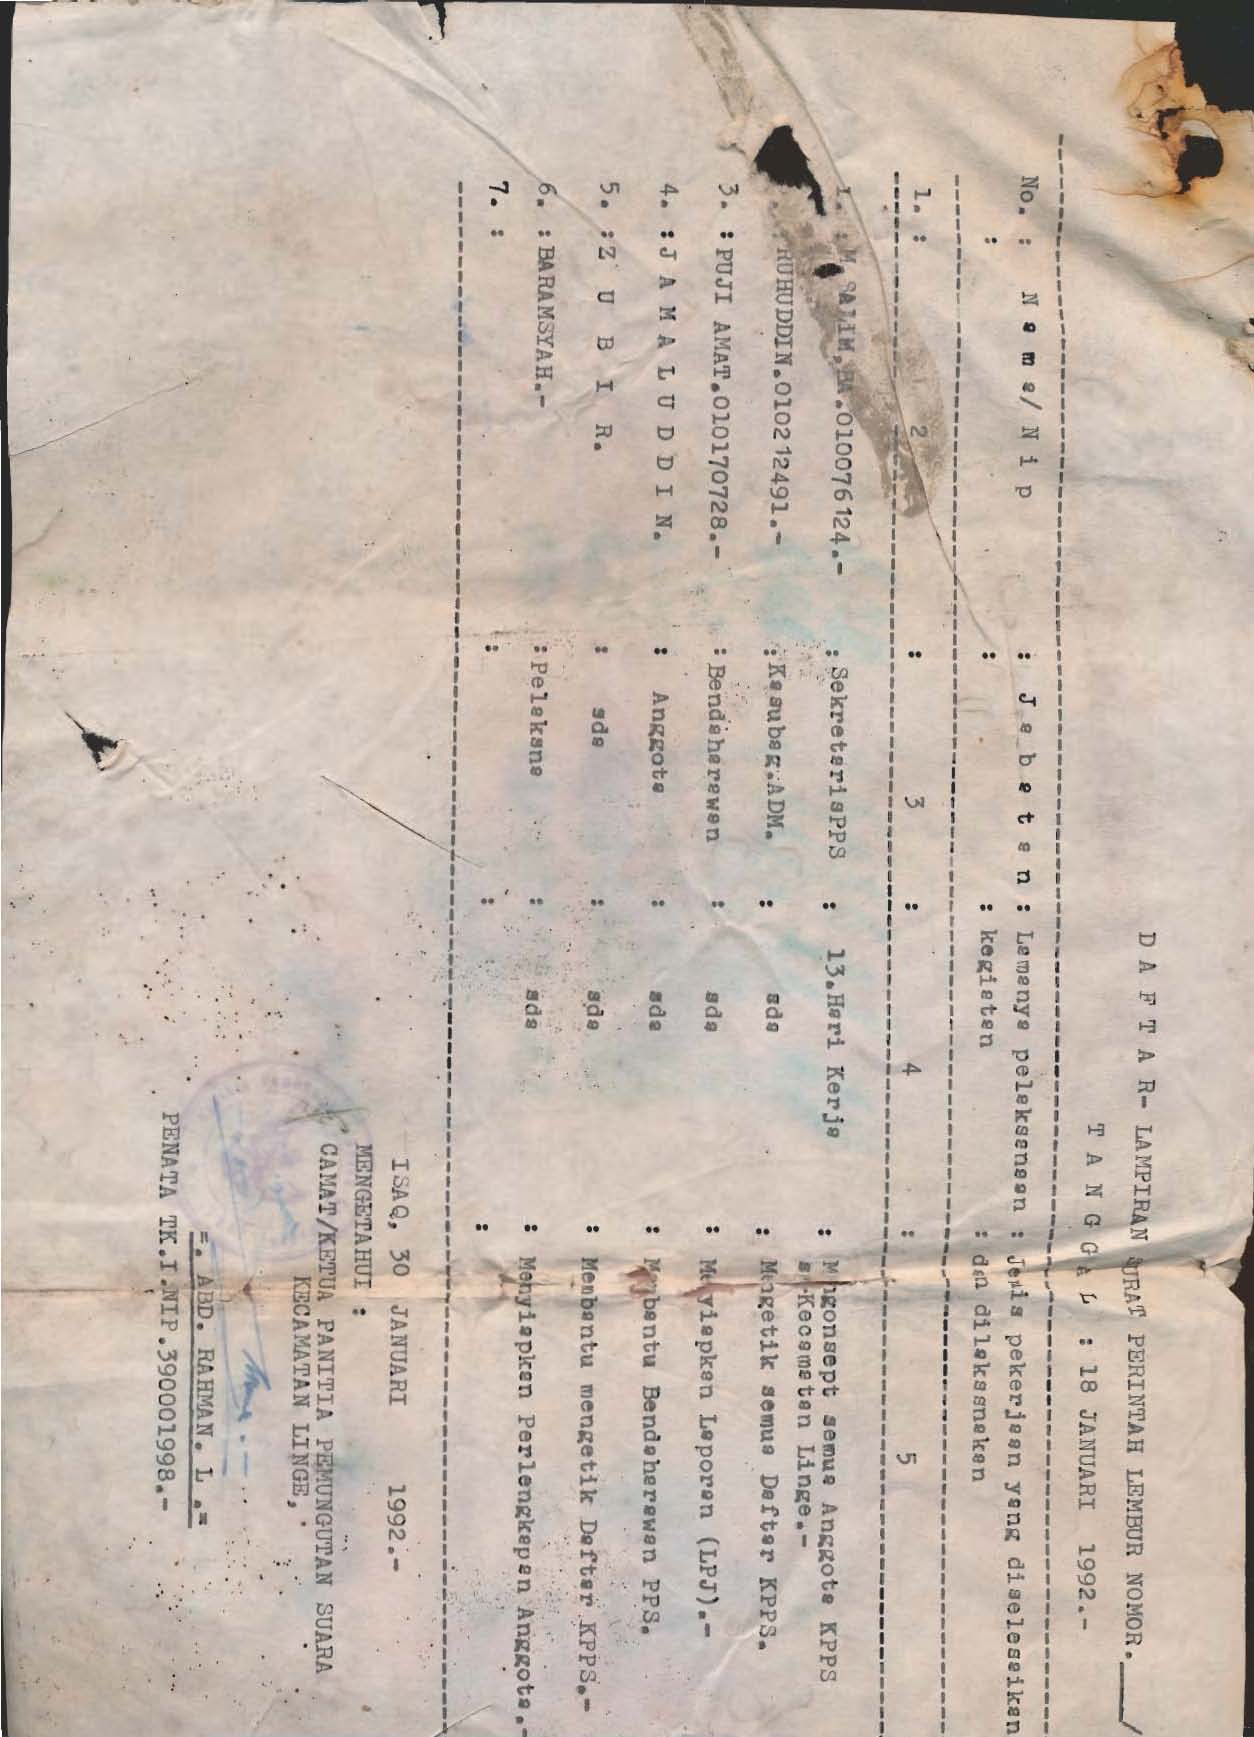 D A F T A R- LAMPIRAN SURAT PERINTAH LEMBUR NOMOR.____/
T A N G G A L : 18 JANUARI 1992.-
No. : N a m a/ N i p : J a b a t a n : Lamanya pelaksanaan : Jenis pekerjaan yang diselesaikan
: : : kegiatan : dan dilaksanakan
1. : 2 : 3 : 4 : 5
1. : M. SALIM, BA.010076124.- : SekretarisPPS : 13.Hari Kerja : Mengonsept semua Anggota KPPS
Kecamatan Linge.-
RUHUDDIN.010212491.- : Kasubag.ADM. : sda : Mengetik semua Daftar KPPS.
3. : PUJI AMAT.010170728.- : Bendaharawan : sda : Menyiapkan Laporan (LPJ).-
4. : J A M A L U D D I N. : Anggota : sda : Membantu Bendaharawan PPS.
5. : Z U B I R. : sda : sda : Membantu mengetik Daftar KPPS.-
6. : BARAMSYAH.- : Pelaksana : sda : Menyiapkan Perlengkapan Anggota.-
7. : : : :
ISAQ, 30 JANUARI 1992.-
MENGETAHUI :
CAMAT/KETUA PANITIA PEMUNGUTAN SUARA
KECAMATAN LINGE,
=. ABD. RAHMAN. L .=
PENATA TK.I.NIP.390001998.-